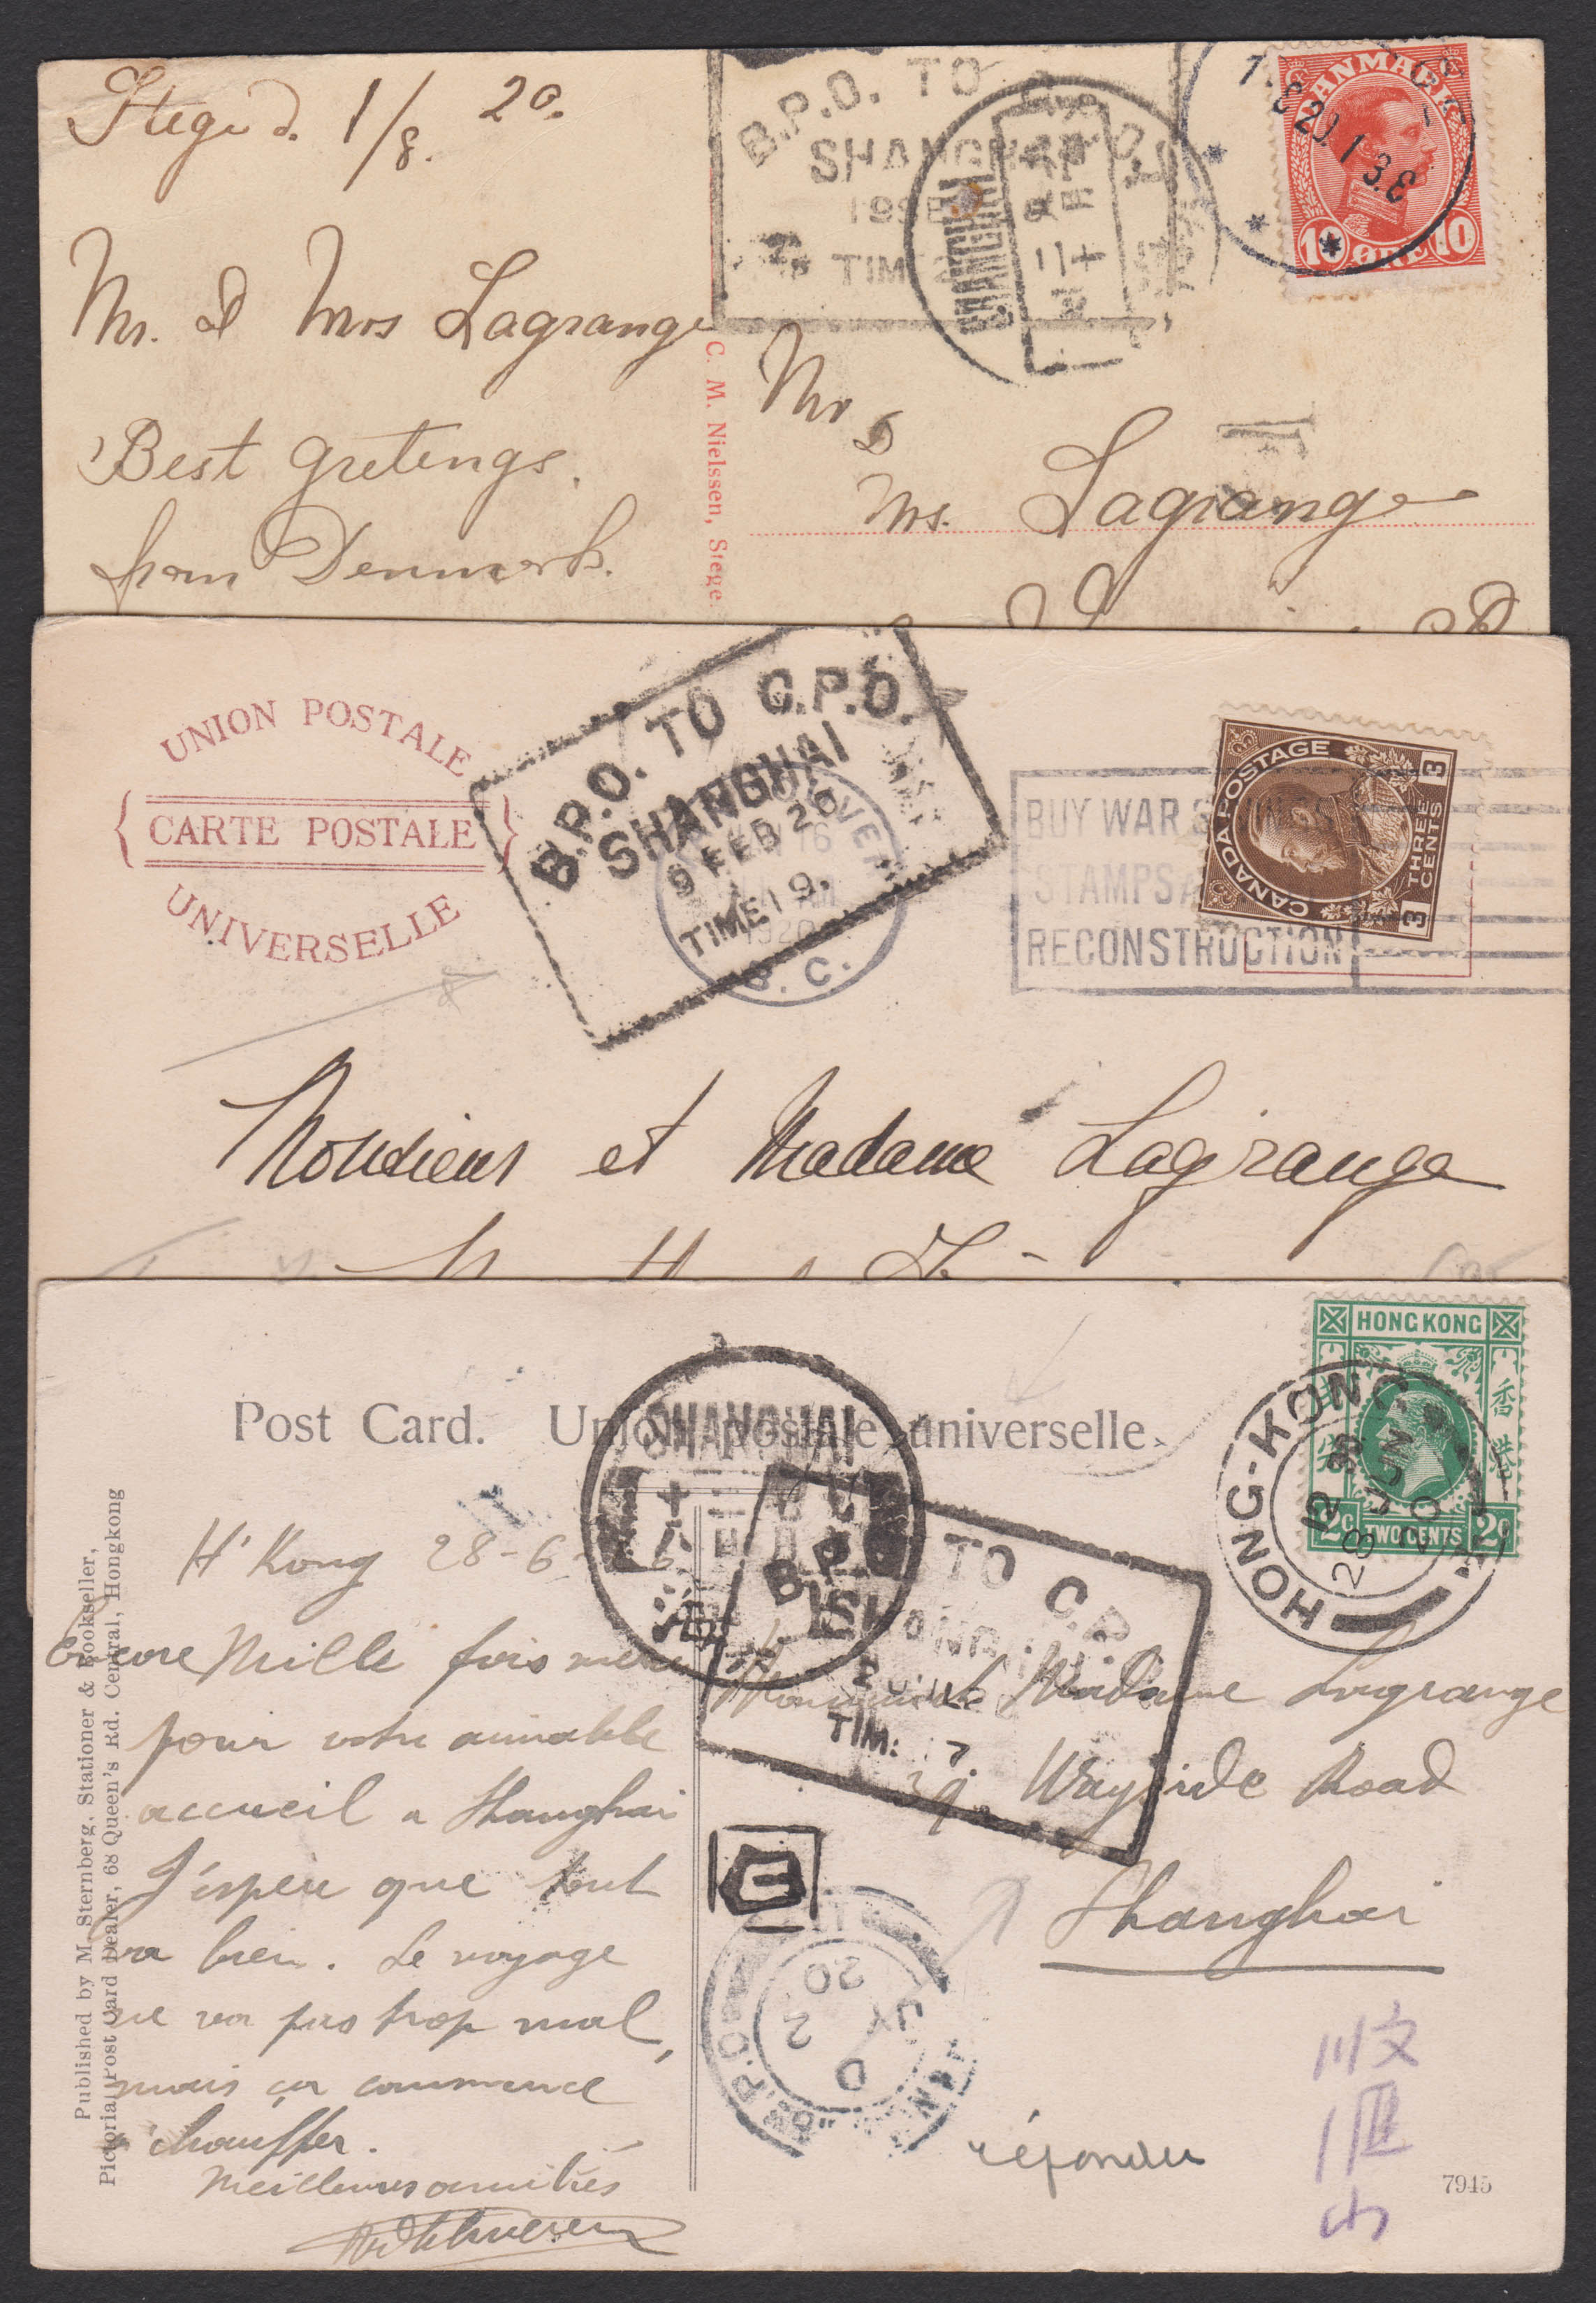 Stege d. 1/8. 20.
Mr. & Mrs Lagrange
Best gretings.
from Denmark.
C. M. Nielssen, Stege.
B.P.O. TO
SHANGHAI
TIM
SHANGHAI
DANMARK
10 ØRE 10
Mr &
Mrs. Lagrange
UNION POSTALE
CARTE POSTALE
UNIVERSELLE
B.P.O. TO C.P.O.
SHANGHAI
9 FEB 20
TIME 19.
1920
B. C.
BUY WAR SAVINGS
STAMPS
RECONSTRUCTION
CANADA POSTAGE
3 THREE CENTS 3
Monsieur et Madame Lagrange
Post Card. Union postale universelle.
HONG KONG
香港
2c TWO CENTS 2c
HONG-KONG
12 30
28 JUN
20
SHANGHAI
B.P.O. TO C.P.
SHANGHAI
TIM: 17.
H' Kong 28-6-
Encore Mille fois merci
pour votre aimable
accueil a Shanghai
J'espère que tout
va bien. Le voyage
ne va pas trop mal,
mais ça commence
a chauffer.
Meilleures amitiés
Madame Lagrange
39. Wayside Road
Shanghai
répondu
D
2 JY
20
匯山
7945
Published by M. Sternberg, Stationer & Bookseller,
Pictorial Post Card Dealer, 68 Queen's Rd. Central, Hongkong